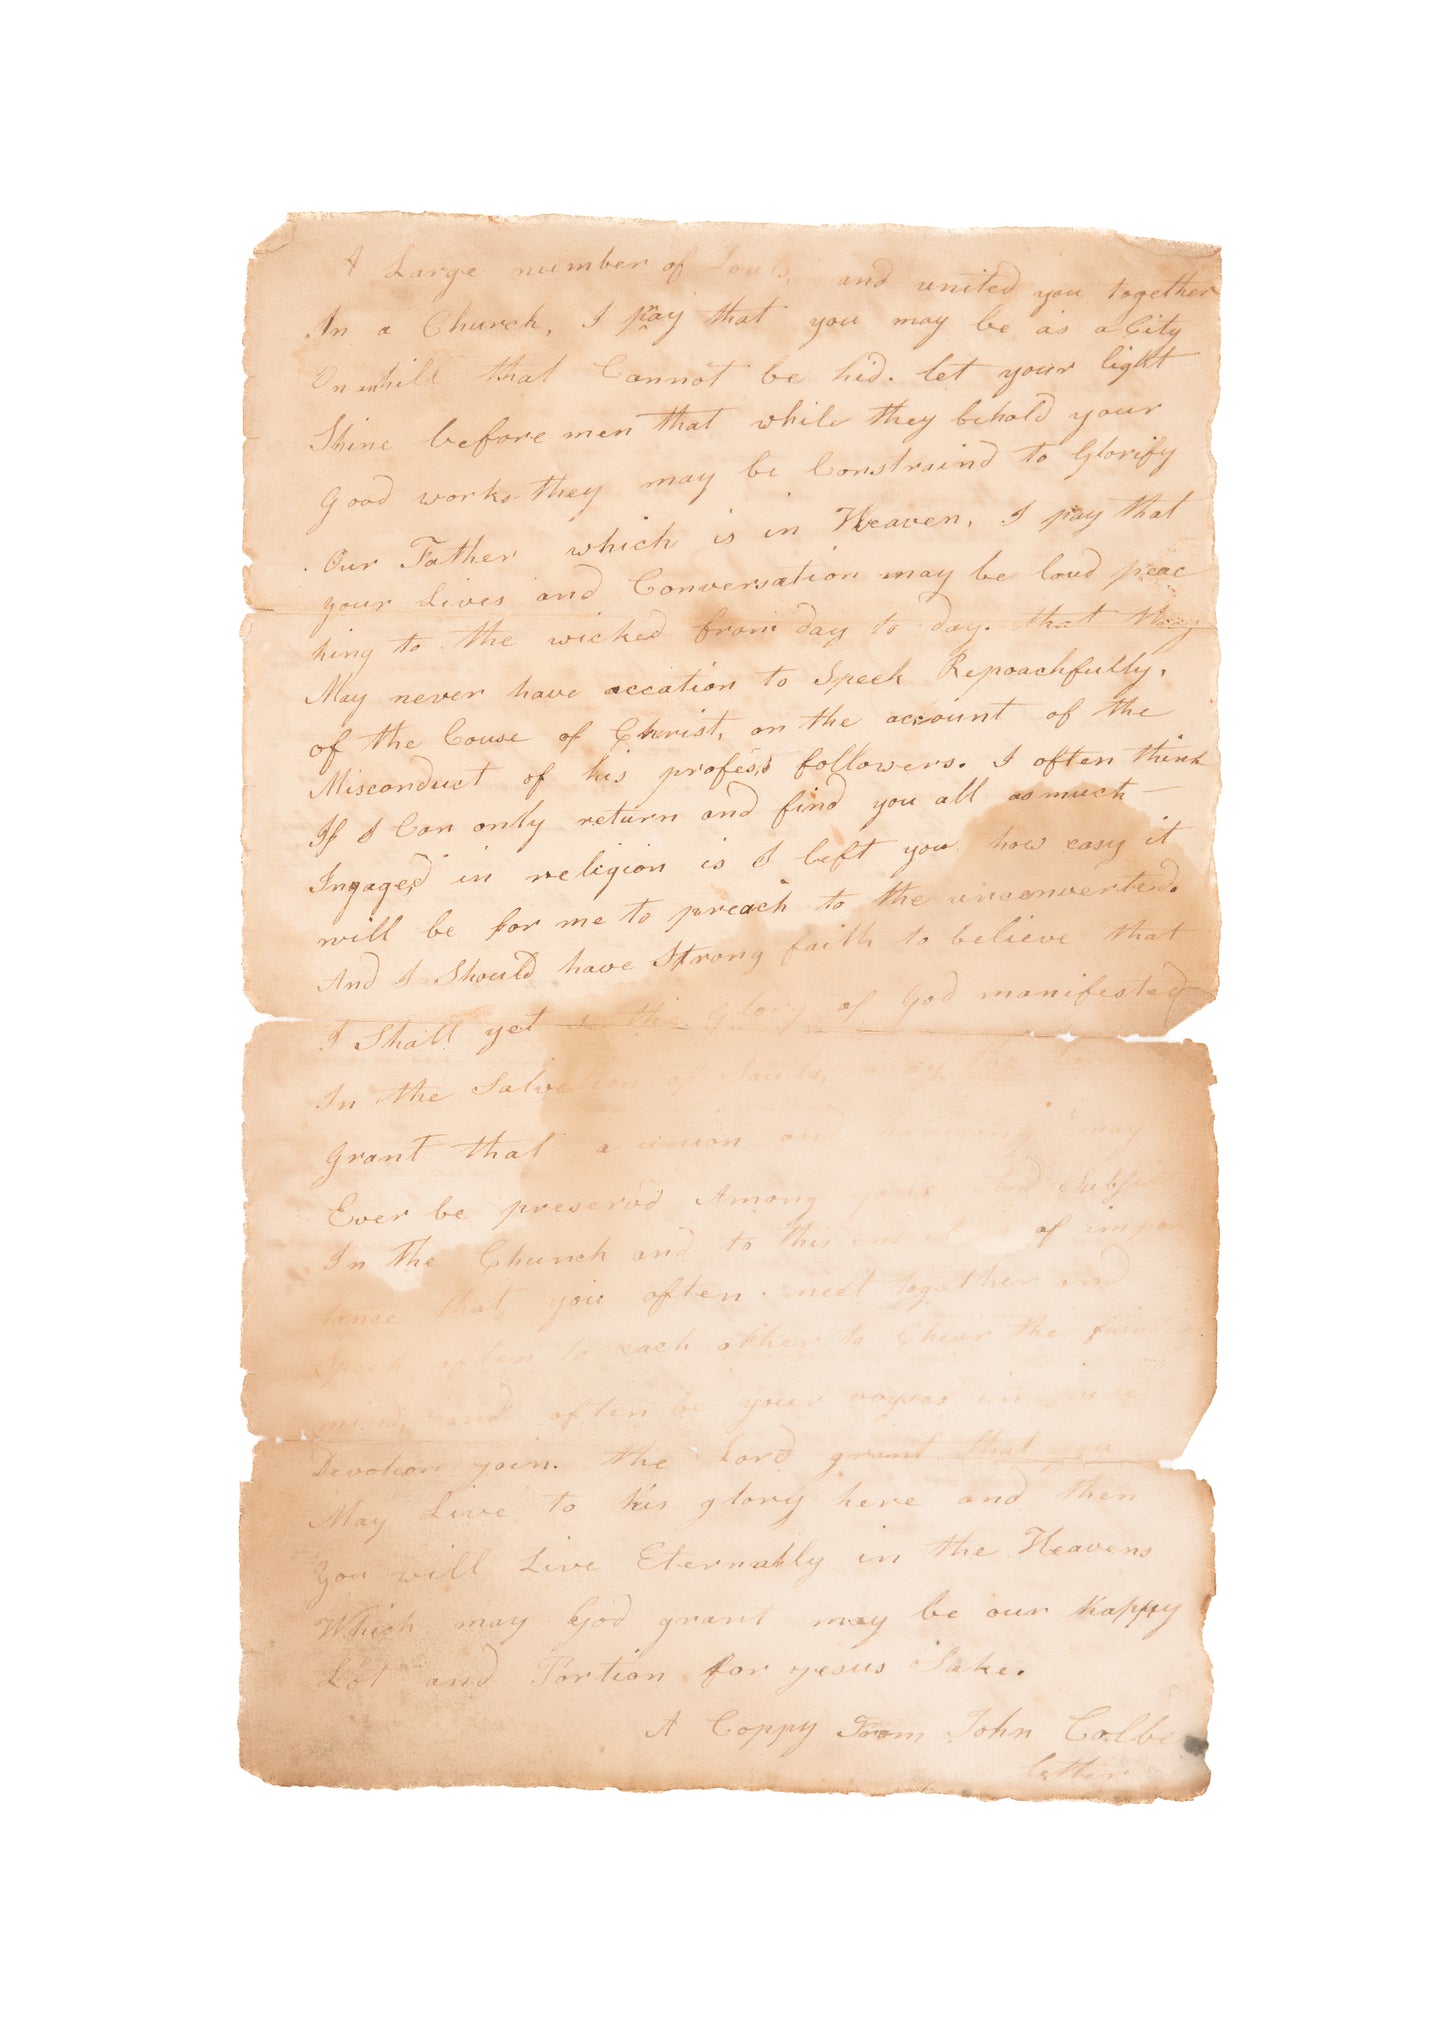 A Large number of Souls, and united you together
In a Church, I pray that you may be as a City
On an hill that Cannot be hid. let your light
Shine before men that while they behold your
Good works they may be Constraind to Glorify
Our Father which is in Heaven, I pay that
your Lives and Conversation may be loud preac
hing to the wicked from day to day. that they
May never have accation to Speek Repoachfully,
of the Couse of Christ, on the account of the
Misconduct of his profess,d followers. I often think
If I Can only return and find you all as much
Ingaged in religion is I left you how easy it
will be for me to preach to the unconverted.
And I Should have Strong faith to believe that
I Shall yet se the Glory of God manifested
In the Salvation of Souls, may the Lord
Grant that a union and harmony may
Ever be preservd Among your And Subsist
In the Church and to this end it is of impor
tance that you often meet together and
Speek often to each other to Chear the fainting
mind, and often be your voyses in
Devotion join. the Lord grant that you
May Live to his glory here and then
You will Live Eternally in the Heavens
Which may God grant may be our happy
Lot and Portion for yesus Sake.
A Coppy From John Colbe
letter